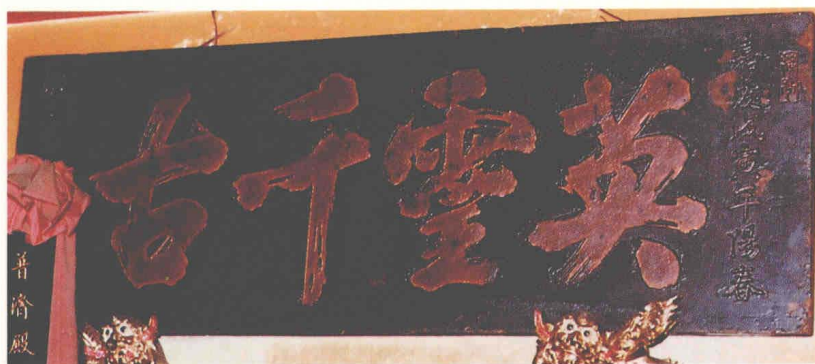 嘉慶戊寅年陽春
英霊千古
普濟殿